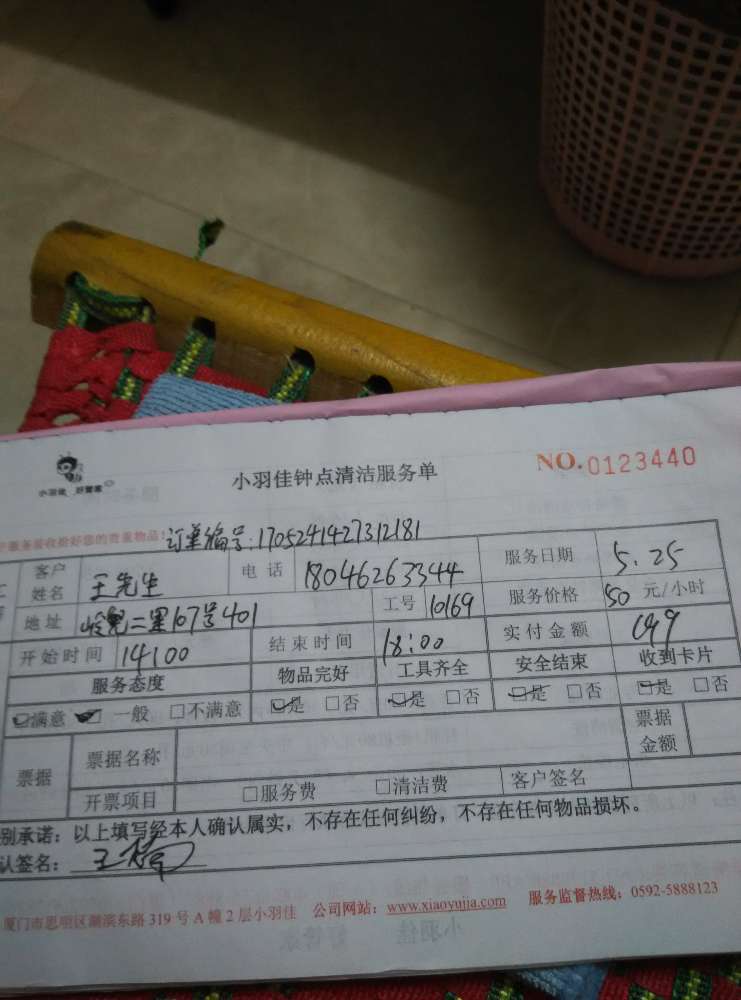 小羽佳 好管家
小羽佳钟点清洁服务单
NO.0123440
服务前收拾好您的贵重物品!
订单编号:1705241427312181
客户姓名 王先生 电话 18046263344 服务日期 5.25
地址 岭兜二里107号401 工号 10169 服务价格 50 元/小时
开始时间 14:00 结束时间 18:00 实付金额 149
服务态度 物品完好 工具齐全 安全结束 收到卡片
☑满意 ☑一般 □不满意 ☑是 □否 ☑是 □否 ☑是 □否 ☑是 □否
票据 票据名称 票据金额
开票项目 □服务费 □清洁费 客户签名
别承诺:以上填写经本人确认属实,不存在任何纠纷,不存在任何物品损坏。
认签名:
厦门市思明区湖滨东路319号A幢2层小羽佳 公司网站:www.xiaoyujia.com 服务监督热线:0592-5888123